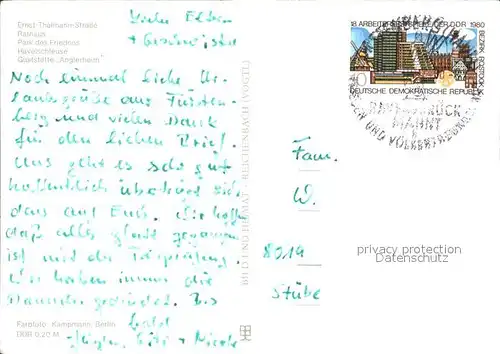 Ernst-Thälmann-Straße
Rathaus
Park des Friedens
Havelschleuse
Gaststätte „Anglerheim"
Liebe Eltern
+ Geschwister
Noch einmal liebe Ur-
laubsgrüße aus Fürsten-
berg und vielen Dank
für den lieben Brief.
Uns geht es sehr gut
hoffentlich überträgt sich
das auf Euch. Wir hoffen
daß alles glatt gegangen
ist mit der
Wir haben immer die
Daumen gedrückt. Bis
bald
+ Nicole
Farbfoto: Kampmann, Berlin
DDR 0,20 M
BILD UND HEIMAT REICHENBACH (VOGTL)
18. ARBEITERFESTSPIELE DER DDR 1980
BEZIRK ROSTOCK
10
DEUTSCHE DEMOKRATISCHE REPUBLIK
RAVENSBRÜCK
MAHNT
UND VÖLKERFREUNDSCHAFT
Fam.
W.
8019
stübe
privacy protection
Datenschutz